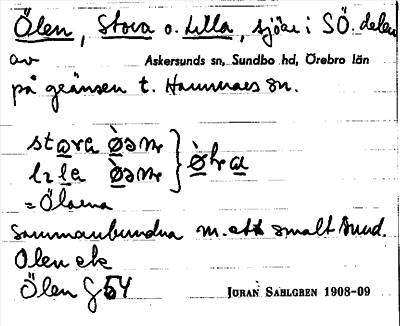 Ölen, Stora o. Lilla, sjöar i SÖ. delen
av Askersunds sn, Sundbo hd, Örebro län
på gränsen t. Hammars sn.
stara
= Ölarna
Sammanbundna m. ett smalt sund.
Ölen ek
Ölen § 54
JÖRAN SAHLGREN 1908-09